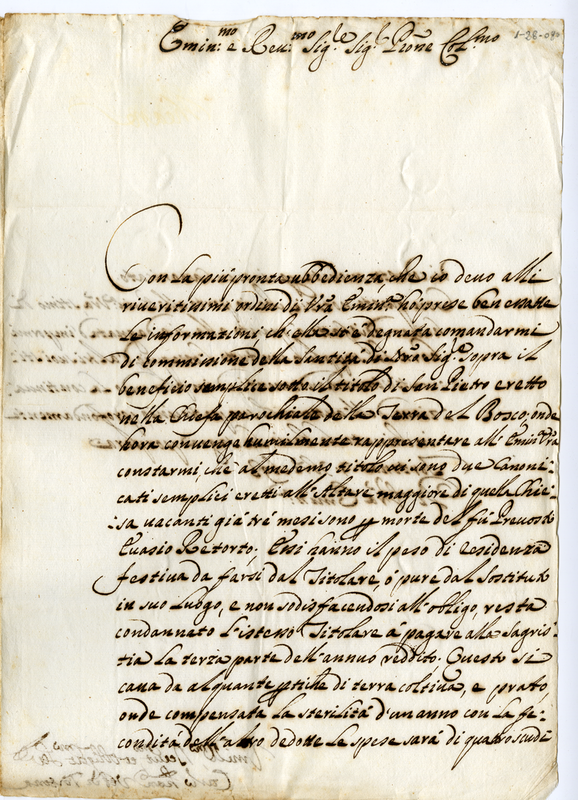 Emin:mo e Reu:mo Sig:re Sig:r Prõne Col:mo
1-28-08
Con la piu pronta ubbedienza, che io deuo alli
riueritissimi ordini di Vrã Emin:za hò prese ben esatte
le informazioni, ch'ella si è degnata comandarmi
di commissione della Santità di Nrõ Sig:re sopra il
beneficio semplice sotto il titolo di San Pietro eretto
nella Chiesa parochiale della Terra del Bosco; onde
hora conuengo humilmente rappresentare all'Emin:za Vrã
constarmi, che al medemo titolo ui sono due Canone:
cati semplici eretti all'Altare maggiore di quella Chie:
:sa uacanti già trè mesi sono p morte del fù Preuosto
Euasio Retorto; Essi hanno il peso di residenza
festiua da farsi dal Titolare, ò pure dal Sostituto
in suo luogo, e non sodisfacendosi all'obligo, resta
condannato l'istesso Titolare à pagare alla Sagris:
tia la terza parte dell'annuo reddito. Questo si
caua da alquante ptiche di terra coltiua, e prato,
onde compensata la sterilità d'un anno con la fe:
condità dell'altro dedotte le spese sarà di quatro scudi